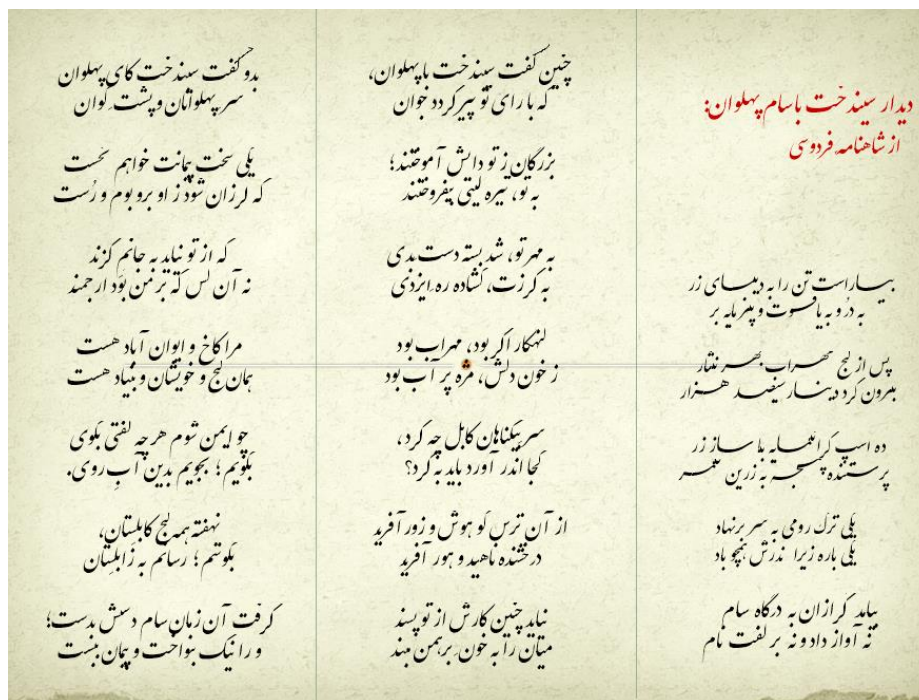 دیدار سیندخت با سام پهلوان:
از شاهنامه فردوسی
بیاراست تن را به دیبای زر
به در و به یاقوت و پرمایه بر
پس از گنج مهراب بهر نثار
بیرون کرد دینار سیصد هزار
ده اسپ گرانمایه با ساز زر
پرستنده پنجه به زرین کمر
یکی ترک رومی به سر برنهاد
یکی باره زیر اندرش همچو باد
بیامد گرازان به درگاه سام
نه آواز داد و نه بر گفت نام
چنین گفت سیندخت با پهلوان،
که با رای تو پیر گردد جوان
بزرگان ز تو دانش آموختند؛
به تو، تیره گیتی بیفروختند
به مهر تو، شد بسته دست بدی
به گرزت، گشاده ره ایزدی
گنهکار اگر بود، مهراب بود
ز خون دلش، مژه پر آب بود
سر بیگناهان کابل چه کرد،
کجا اندر آورد باید به گرد؟
از آن ترس کو هوش و زور آفرید
درخشنده ناهید و هور آفرید
نیاید چنین کارش از تو پسند
میان را به خون برهمن مبند
بدو گفت سیندخت کای پهلوان
سر پهلوانان و پشت گوان
یکی سخت پیمانت خواهم نخست
که لرزان شود ز او بر و بوم و رُست
که از تو نیاید به جانم گزند
نه آن کس که بر من بود ارجمند
مرا کاخ و ایوان آباد هست
همان گنج و خویشان و بنیاد هست
چو ایمن شوم هر چه گفتی بگوی
بگویم؛ بجویم بدین آبِ روی.
نهفته همه گنج کابلستان،
بکوشم؛ رسانم به زابلستان
گرفت آن زمان سام دستش بدست؛
ورا نیک بنواخت و پیمان ببست